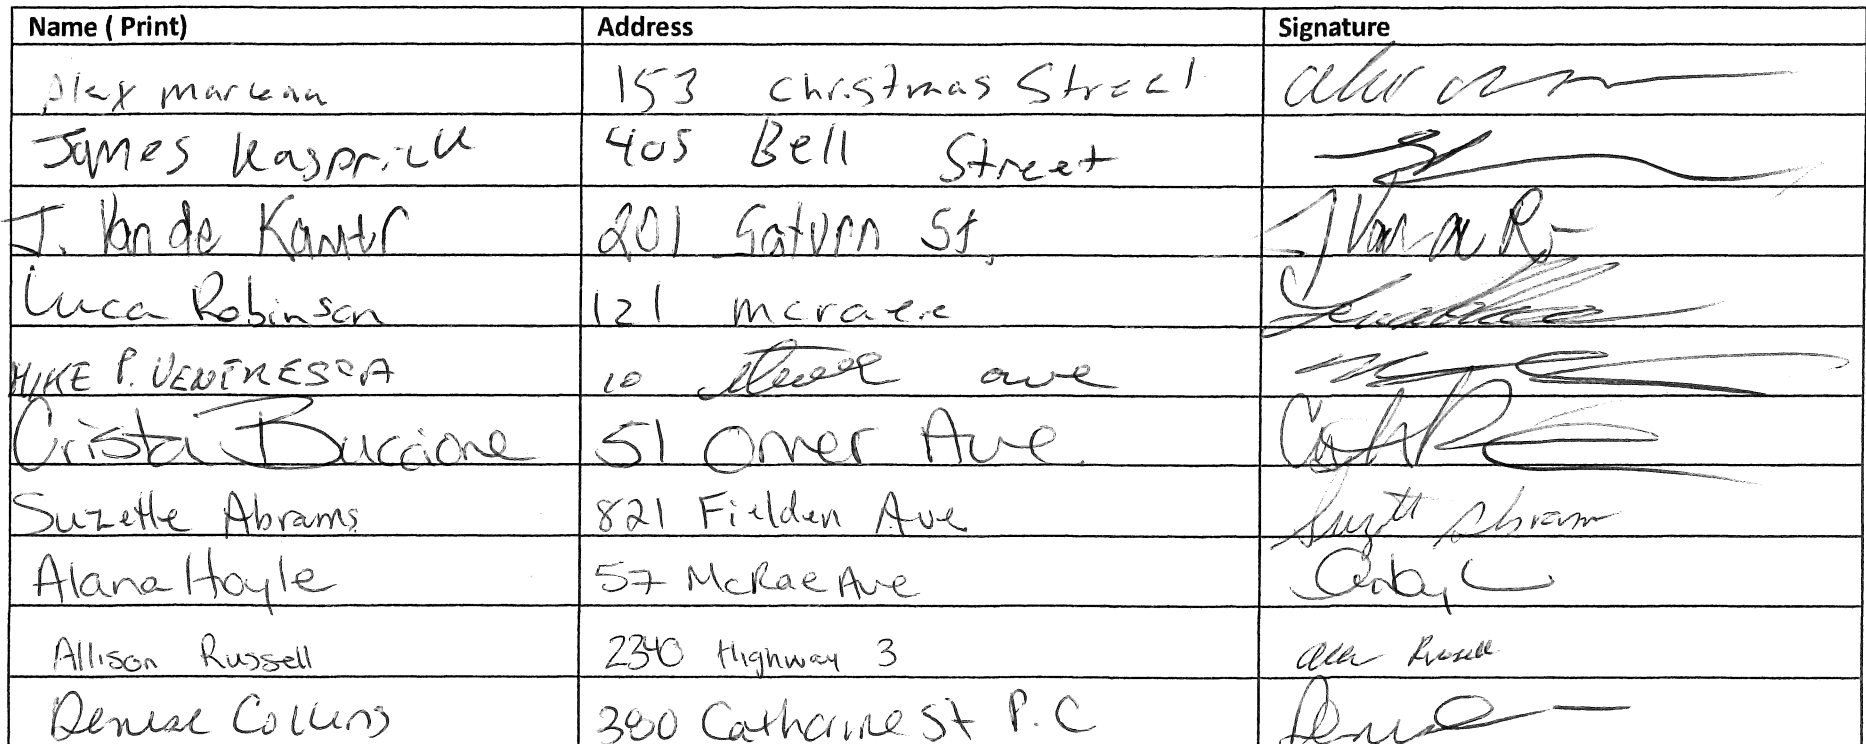 Name ( Print) Address Signature
Alex Marleau 153 Christmas Street
James Kasprick 405 Bell Street
J. Van de Kamer 201 Saturn St. J Van de K
Luca Robinson 121 mcraee
MIKE P. VENTRESCA 10 ave
Crista Buccione 51 Omer Ave.
Suzette Abrams 821 Fielden Ave Suzette Abrams
Alana Hoyle 57 McRae Ave
Allison Russell 2340 Highway 3 Russell
Denise Collins 380 Catharine St P.C